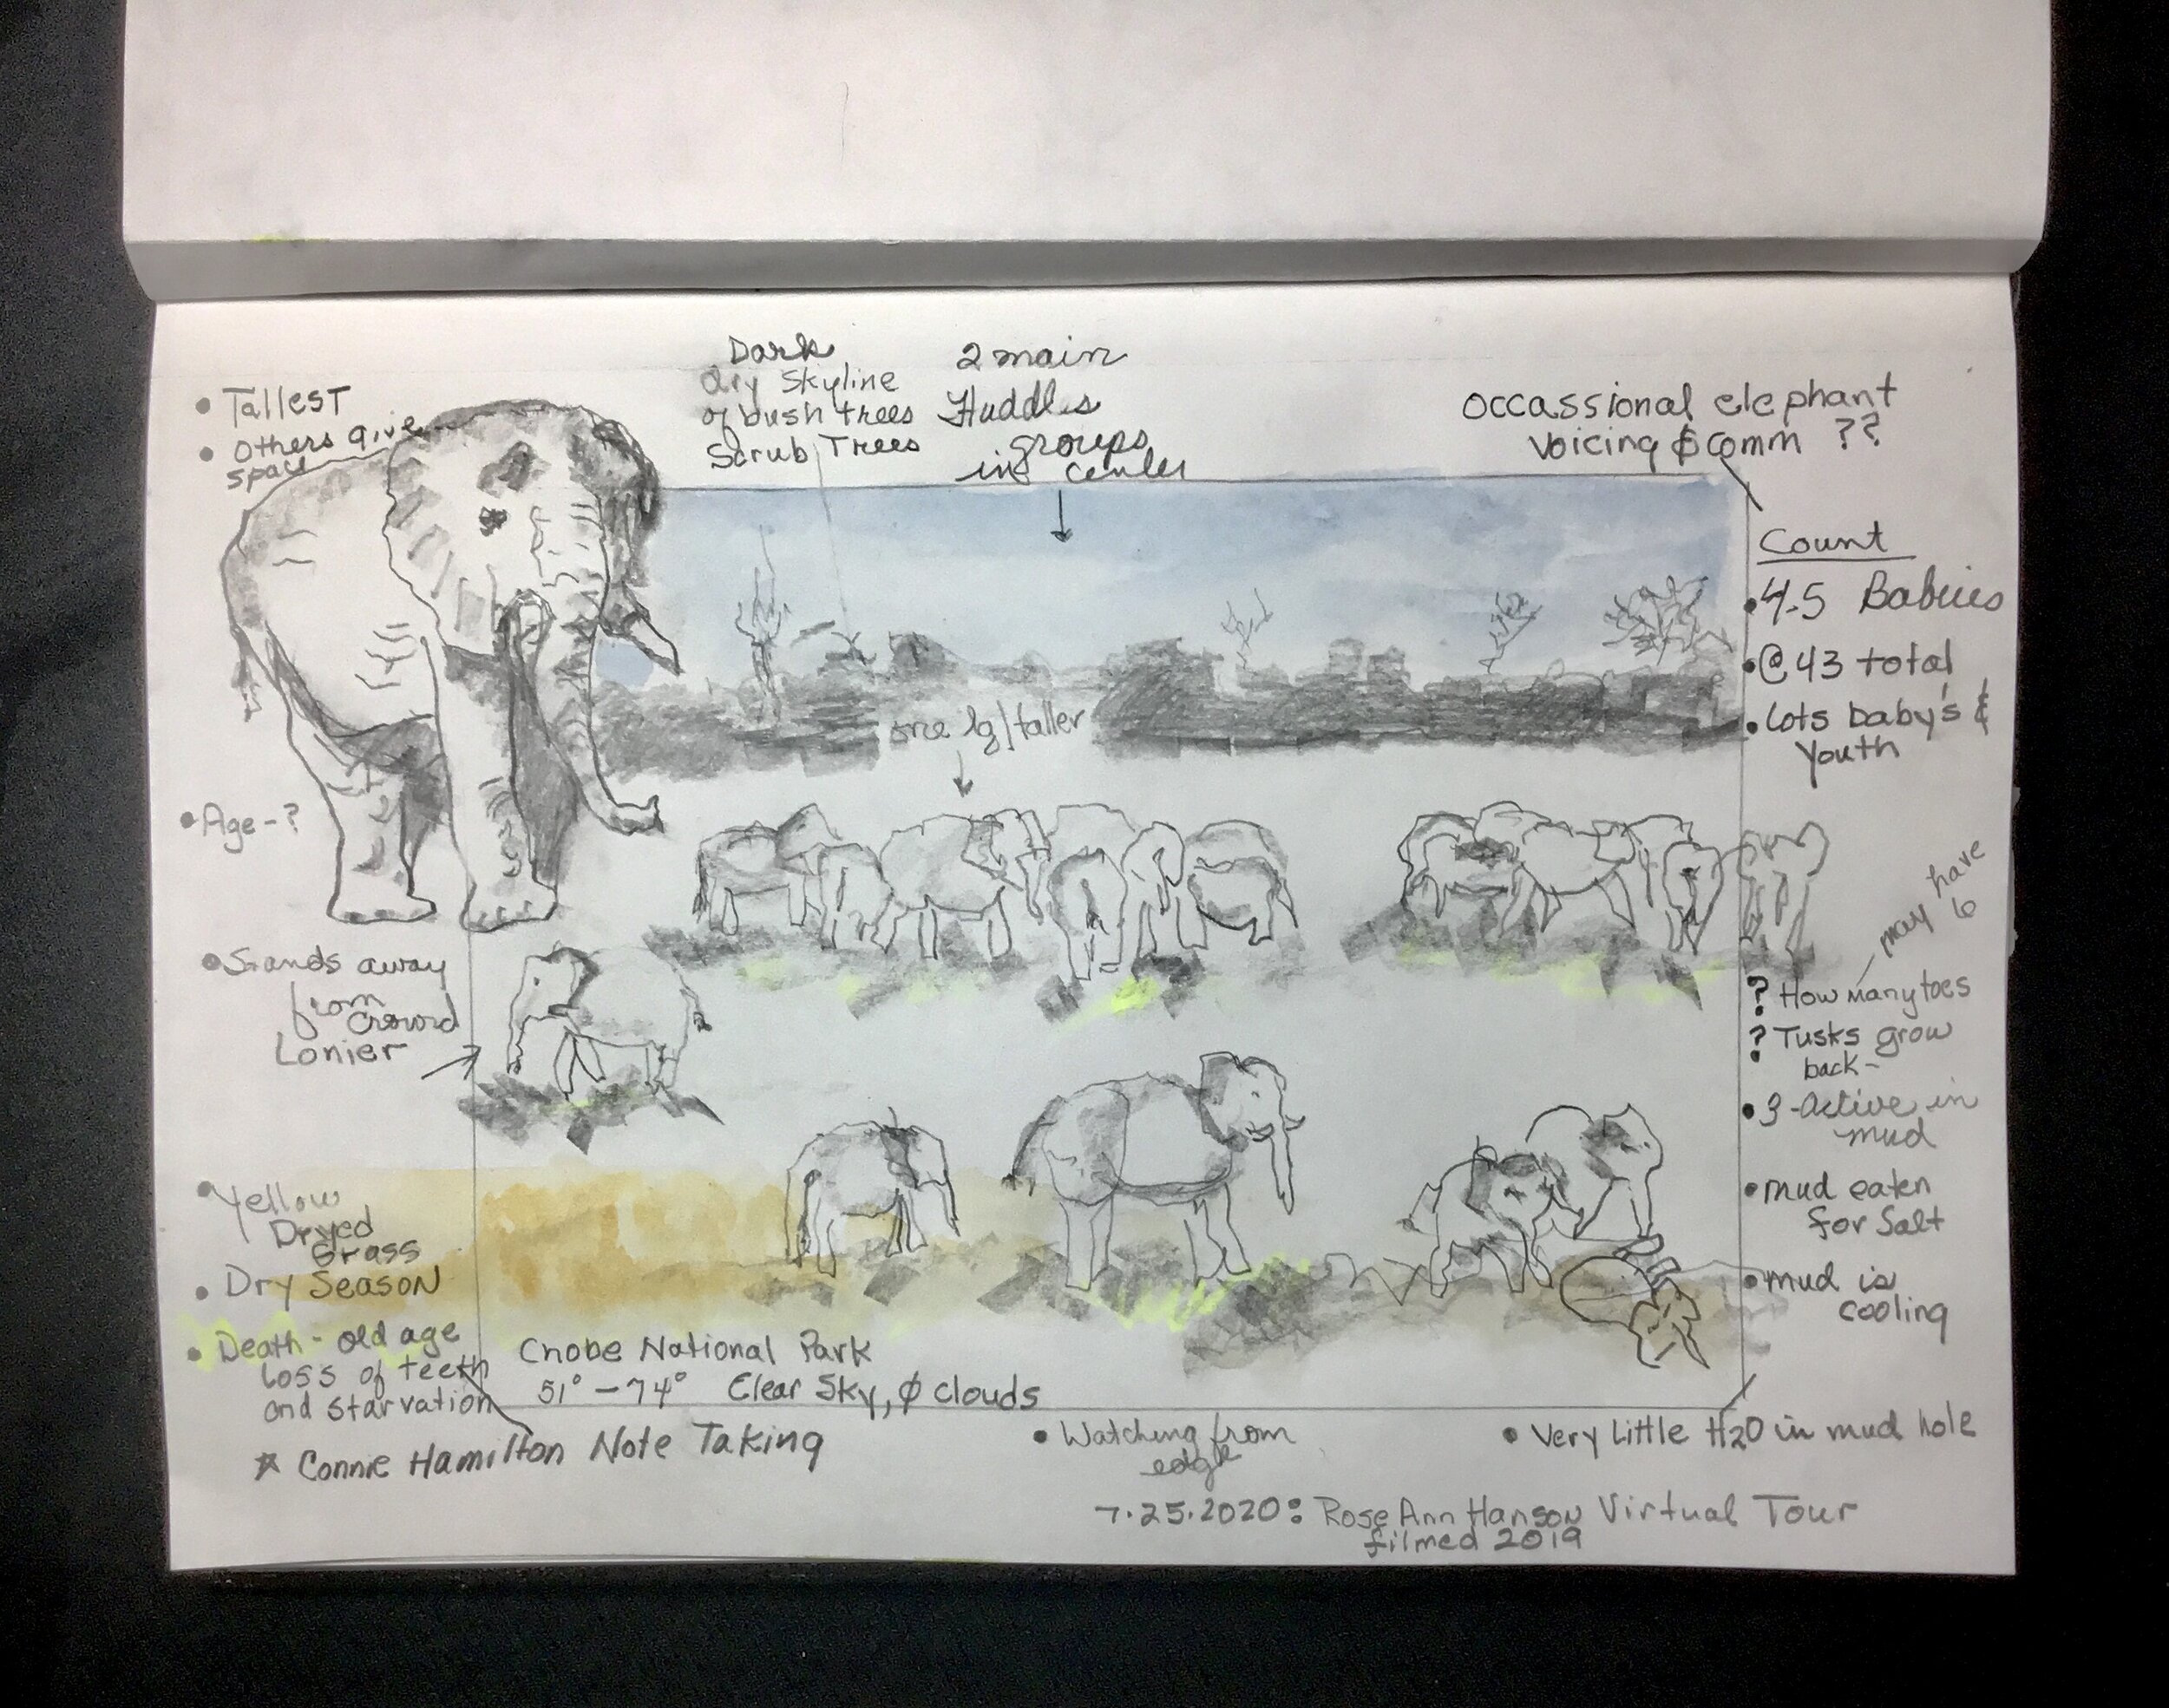 • Tallest
• Others give
space
Dark
dry skyline
of bush trees
Scrub Trees
2 main
Huddles
groups
in center
Occassional elephant
Voicing & comm ??
Count
• 4-5 Babies
• @ 43 total
• Lots baby's &
Youth
one lg/taller
• Age - ?
may have
6
• Stands away
from
Crowd
Lonier
? How many toes
? Tusks grow
back -
• 3 - Active in
mud
• mud eaten
for Salt
• mud is
cooling
• Yellow
Dryed
Grass
• Dry Season
• Death - old age
Loss of teeth
and starvation
Cnobe National Park
51° - 74° Clear Sky, ∅ clouds
☆ Connie Hamilton Note Taking
• Watching from
edge
• Very Little H2O in mud hole
7.25.2020: Rose Ann Hanson Virtual Tour
filmed 2019